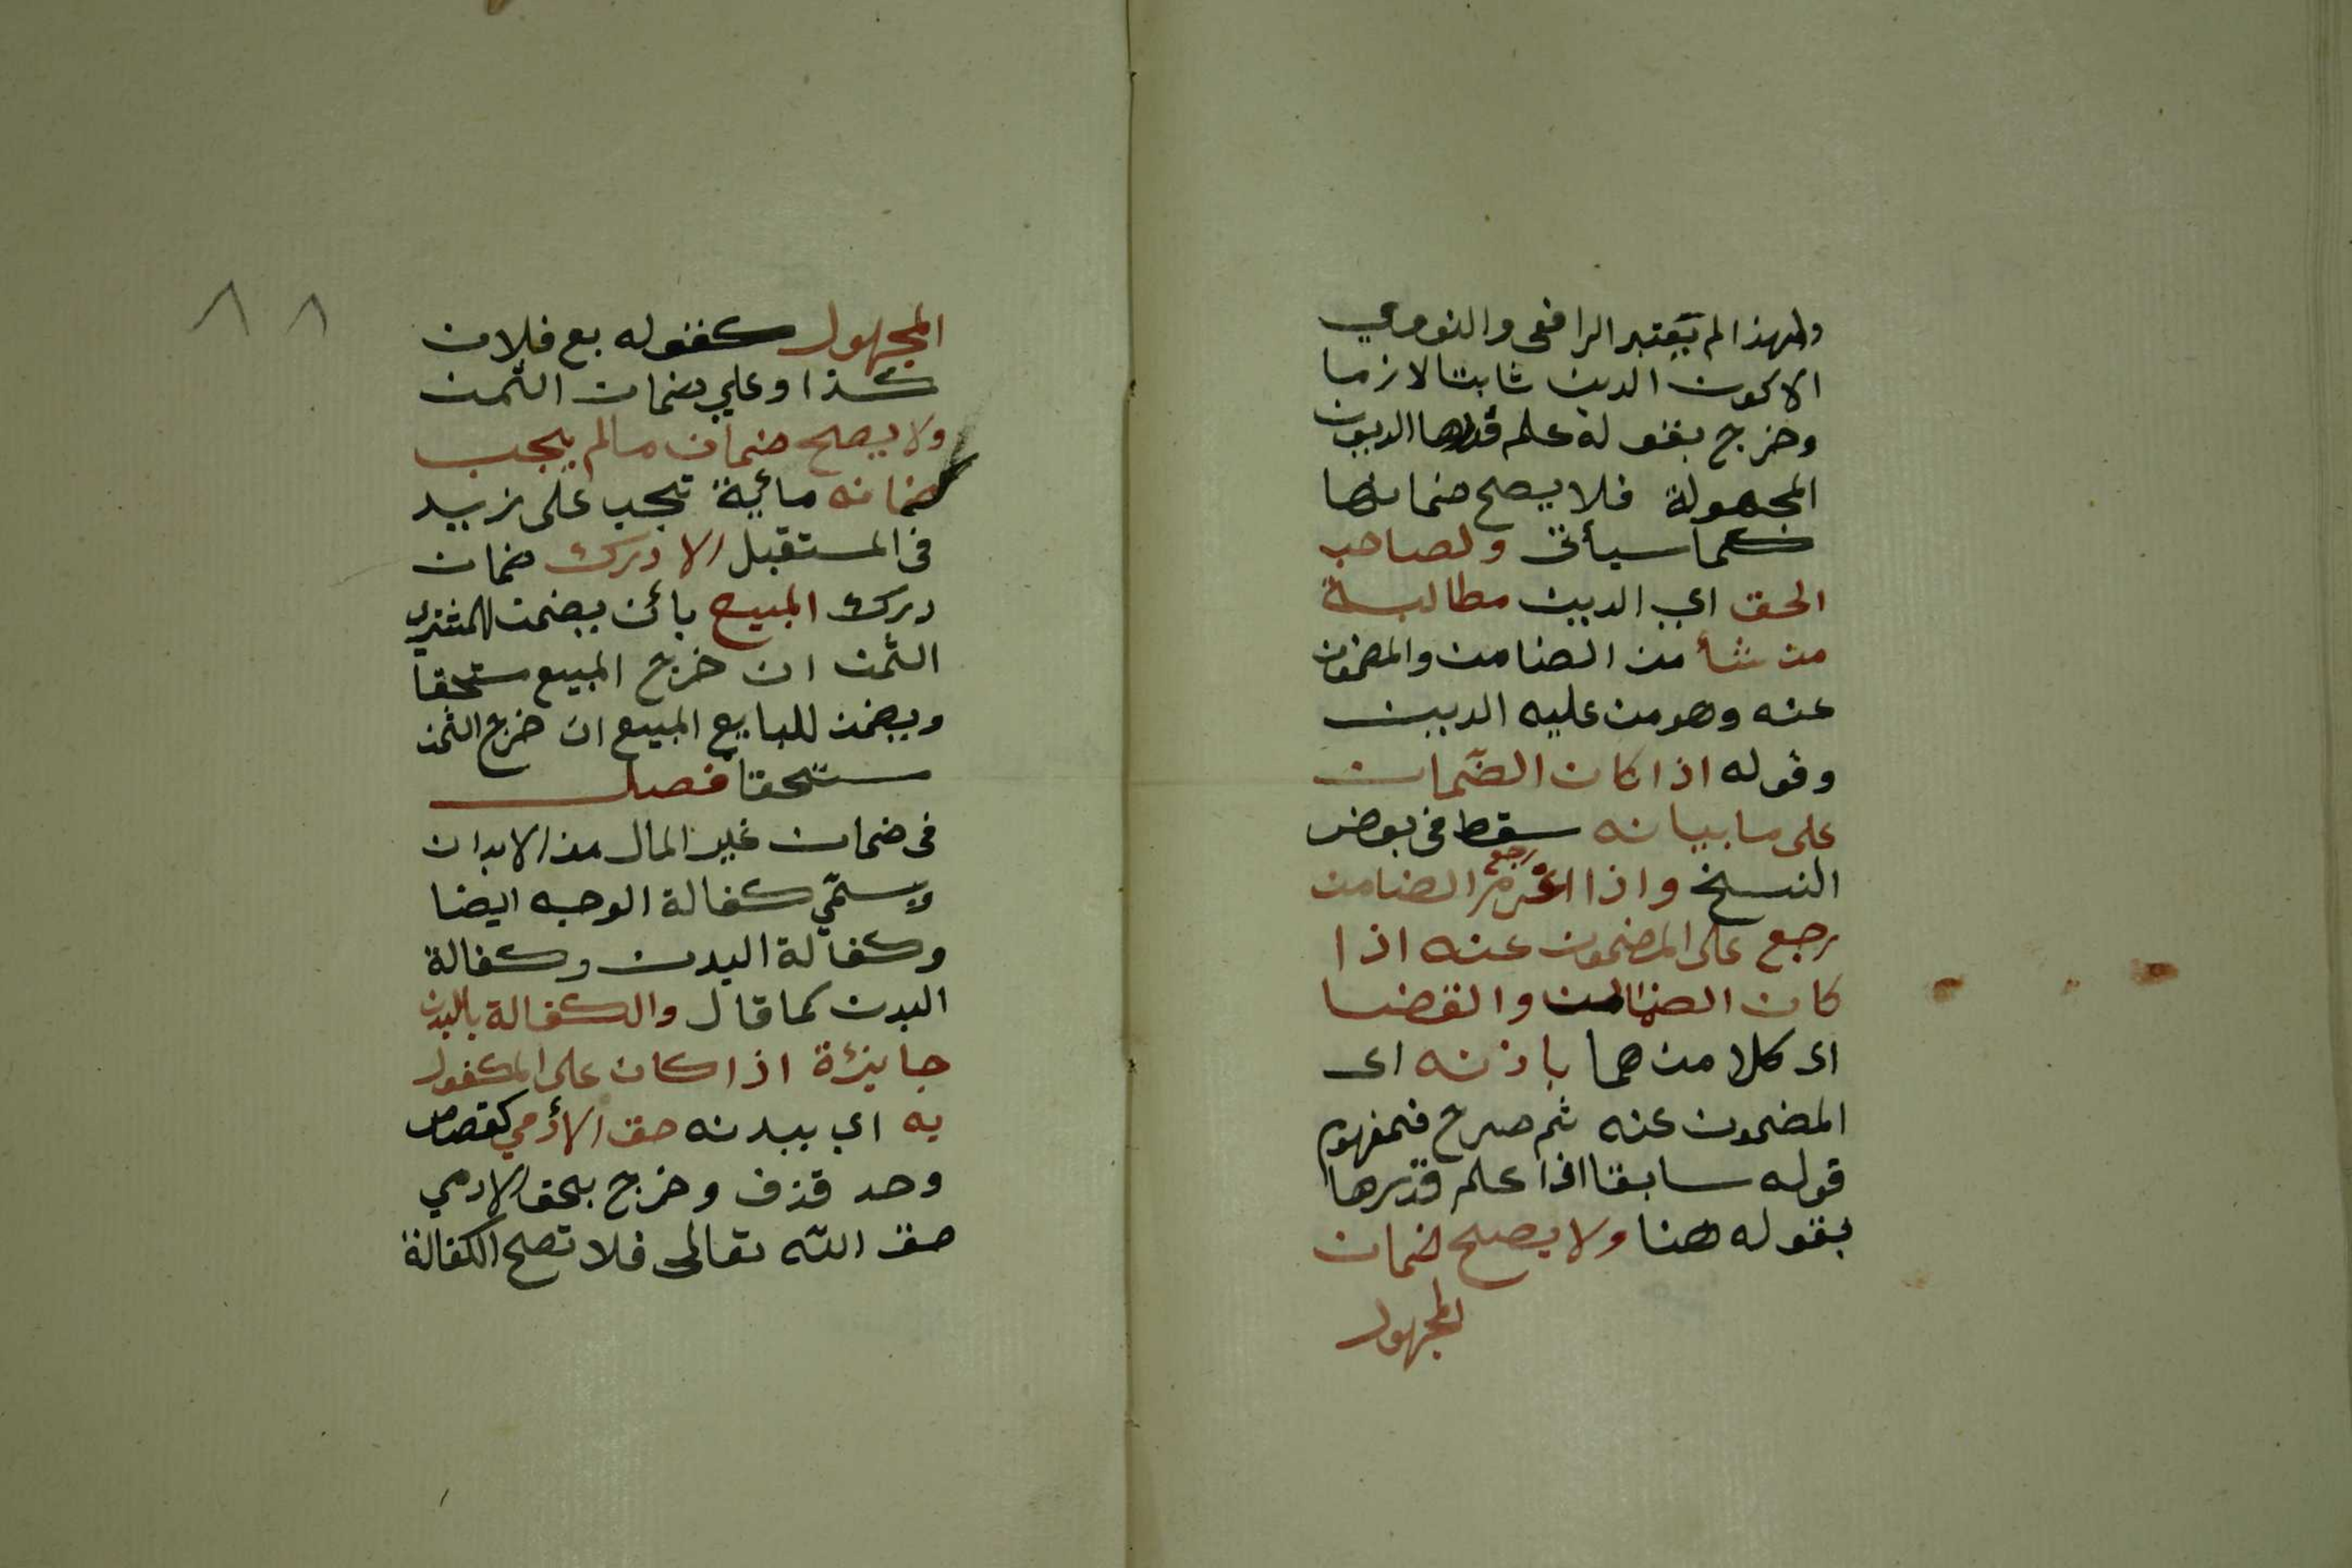 ولهذا لم يعتبر الرافعى والنووي
الا كون الدين ثابتا لازما
وخرج بقوله علم قدرها الديون
المجهولة فلا يصح ضمانها
كما سيأتى ولصاحب
الحق اي الدين مطالبة
من شأ من الضامن والمضمون
عنه وهو من عليه الدين
وقوله اذا كان الضمان
على ما بيانه سقط فى بعض
النسخ واذا اغرم الضامن
رجع
رجع على المضمون عنه اذا
كان الضمان والقضا
اى كلا منهما باذنه اى
المضمون عنه ثم صرح فمفهوم
قوله سابقا اذا علم قدرها
بقوله هنا ولا يصح ضمان
المجهول
٨٨
المجهول كقوله بع فلان
كذا وعلي ضمان الثمن
ولا يصح ضمان مالم يجب
ضمانه مأية تجب على زيد
فى المستقبل الا درك ضمان
درك المبيع بأن يضمن للمشترى
الثمن ان خرج المبيع ستحقا
ويضمن للبايع المبيع ان خرج الثمن
ستحقا فصل
فى ضمان غير المال من الابدان
ويسمّي كفالة الوجه ايضا
وكفالة البدن وكفالة
البدن كما قال والكفالة بالبدن
جايزة اذا كان على المكفول
به اي ببدنه حق الأدمي كقصاص
وحد قذف وخرج بحق الادمي
حق الله تعالى فلا تصح الكفالة